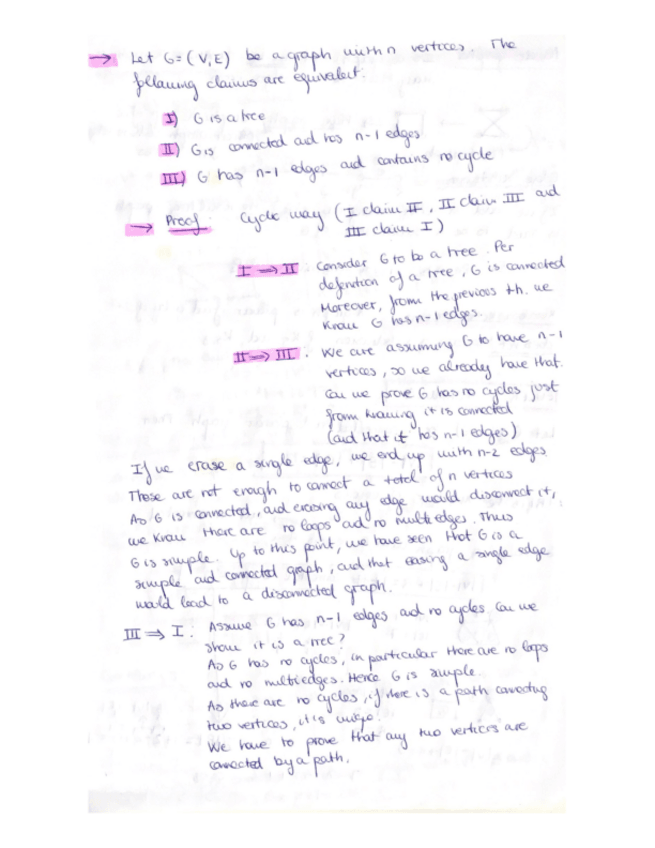 → Let G=(V,E) be a graph with n vertices. The
following claims are equivalent:
I) G is a tree
II) G is connected and has n-1 edges
III) G has n-1 edges and contains no cycle
→ Proof: Cyclic way (I claim II, II claim III and
III claim I)
I ⇒ II: Consider G to be a tree. Per
definition of a tree, G is connected
Moreover, from the previous th. we
know G has n-1 edges.
II ⇒ III: We are assuming G to have n-1
vertices, so we already have that.
Can we prove G has no cycles just
from knowing it is connected
(and that it has n-1 edges)
If we erase a single edge, we end up with n-2 edges
These are not enough to connect a total of n vertices
As G is connected, and erasing any edge would disconnect it,
we know there are no loops and no multiedges. Thus
G is simple. Up to this point, we have seen that G is a
simple and connected graph, and that easing a single edge
would lead to a disconnected graph.
III ⇒ I: Assume G has n-1 edges and no cycles. Can we
show it is a tree?
As G has no cycles, in particular there are no loops
and no multiedges. Hence G is simple.
As there are no cycles, if there is a path connecting
two vertices, it is unique.
We have to prove that any two vertices are
connected by a path.